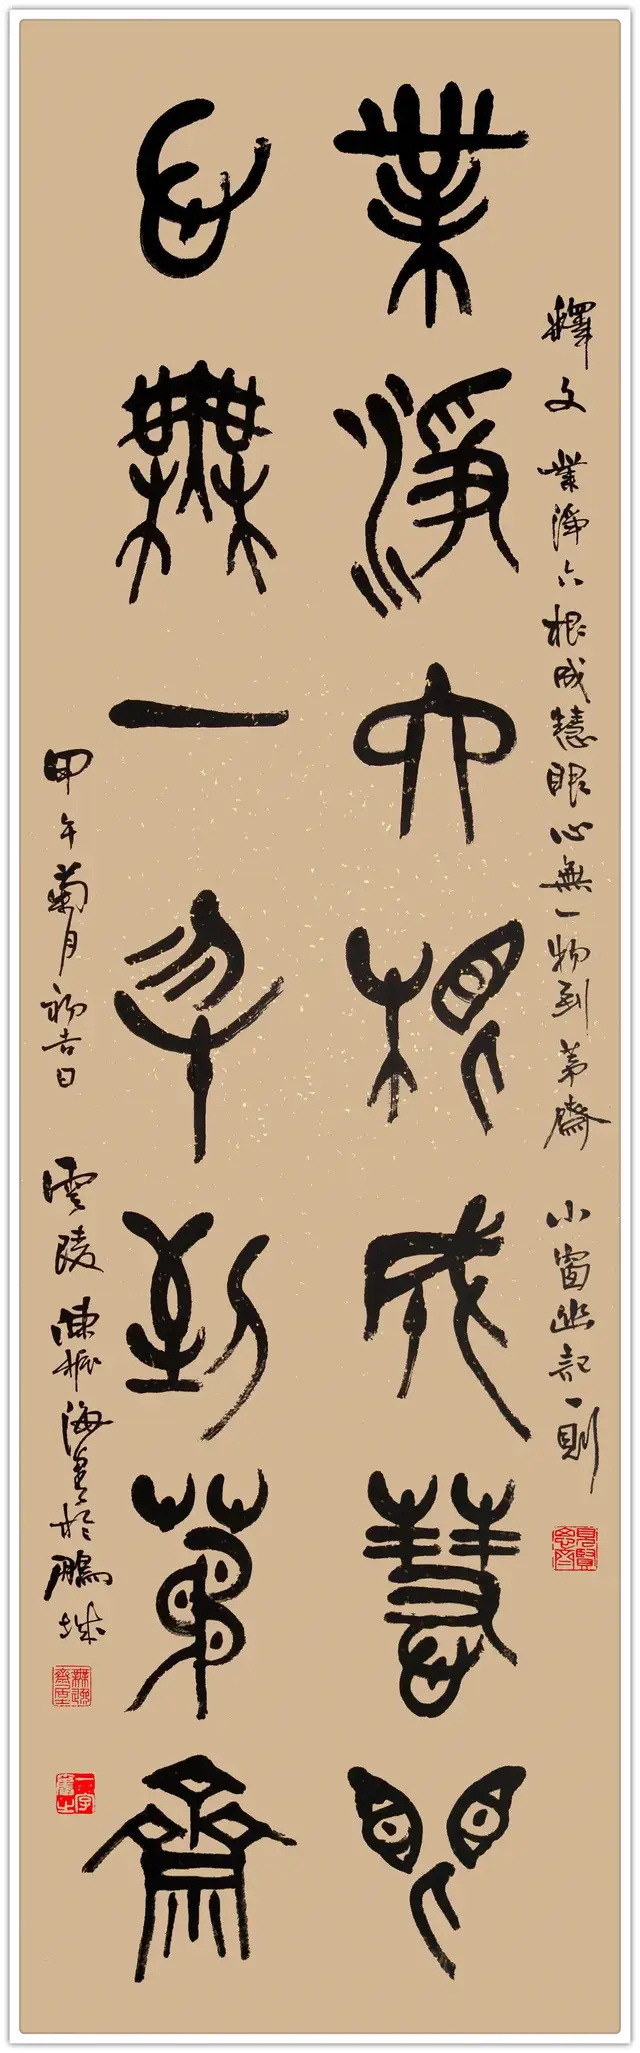 釋文 業淨六根成慧眼心無一物到茅齋 小窗幽記一則
見賢思齊
業淨六根成慧眼
心無一物到茅齋
甲午菊月初吉日 雲陵 陳振海書於鵬城